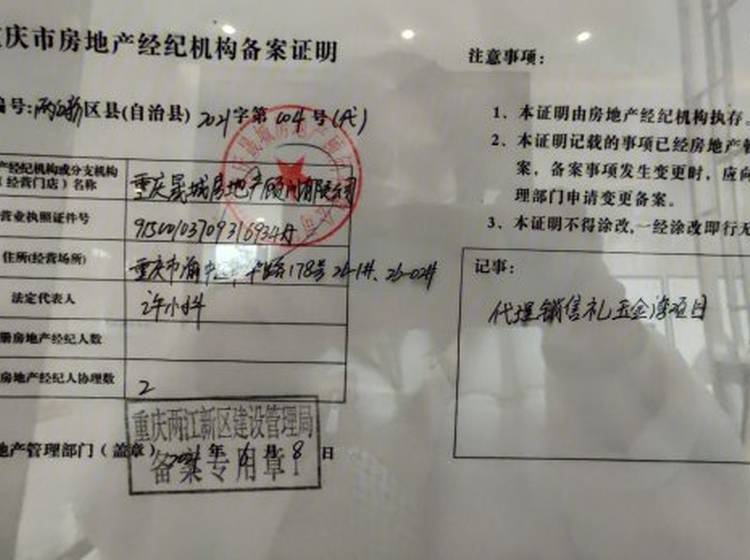 庆市房地产经纪机构备案证明
编号:两江新区县(自治县)2021字第004号(代)
产经纪机构或分支机构
(经营门店)名称
重庆晟城房地产顾问有限公司
营业执照证件号
住所(经营场所)
重庆市渝中区
178号26-1#、26-02#
法定代表人
许小
册房地产经纪人数
房地产经纪人协理数
2
重庆两江新区建设管理局
备案专用章1
地产管理部门(盖章)
年
月8日
注意事项:
1、本证明由房地产经纪机构执存。
2、本证明记载的事项已经房地产管
案,备案事项发生变更时,应向
理部门申请变更备案。
3、本证明不得涂改,一经涂改即行无
记事:
代理销售礼玉金湾项目